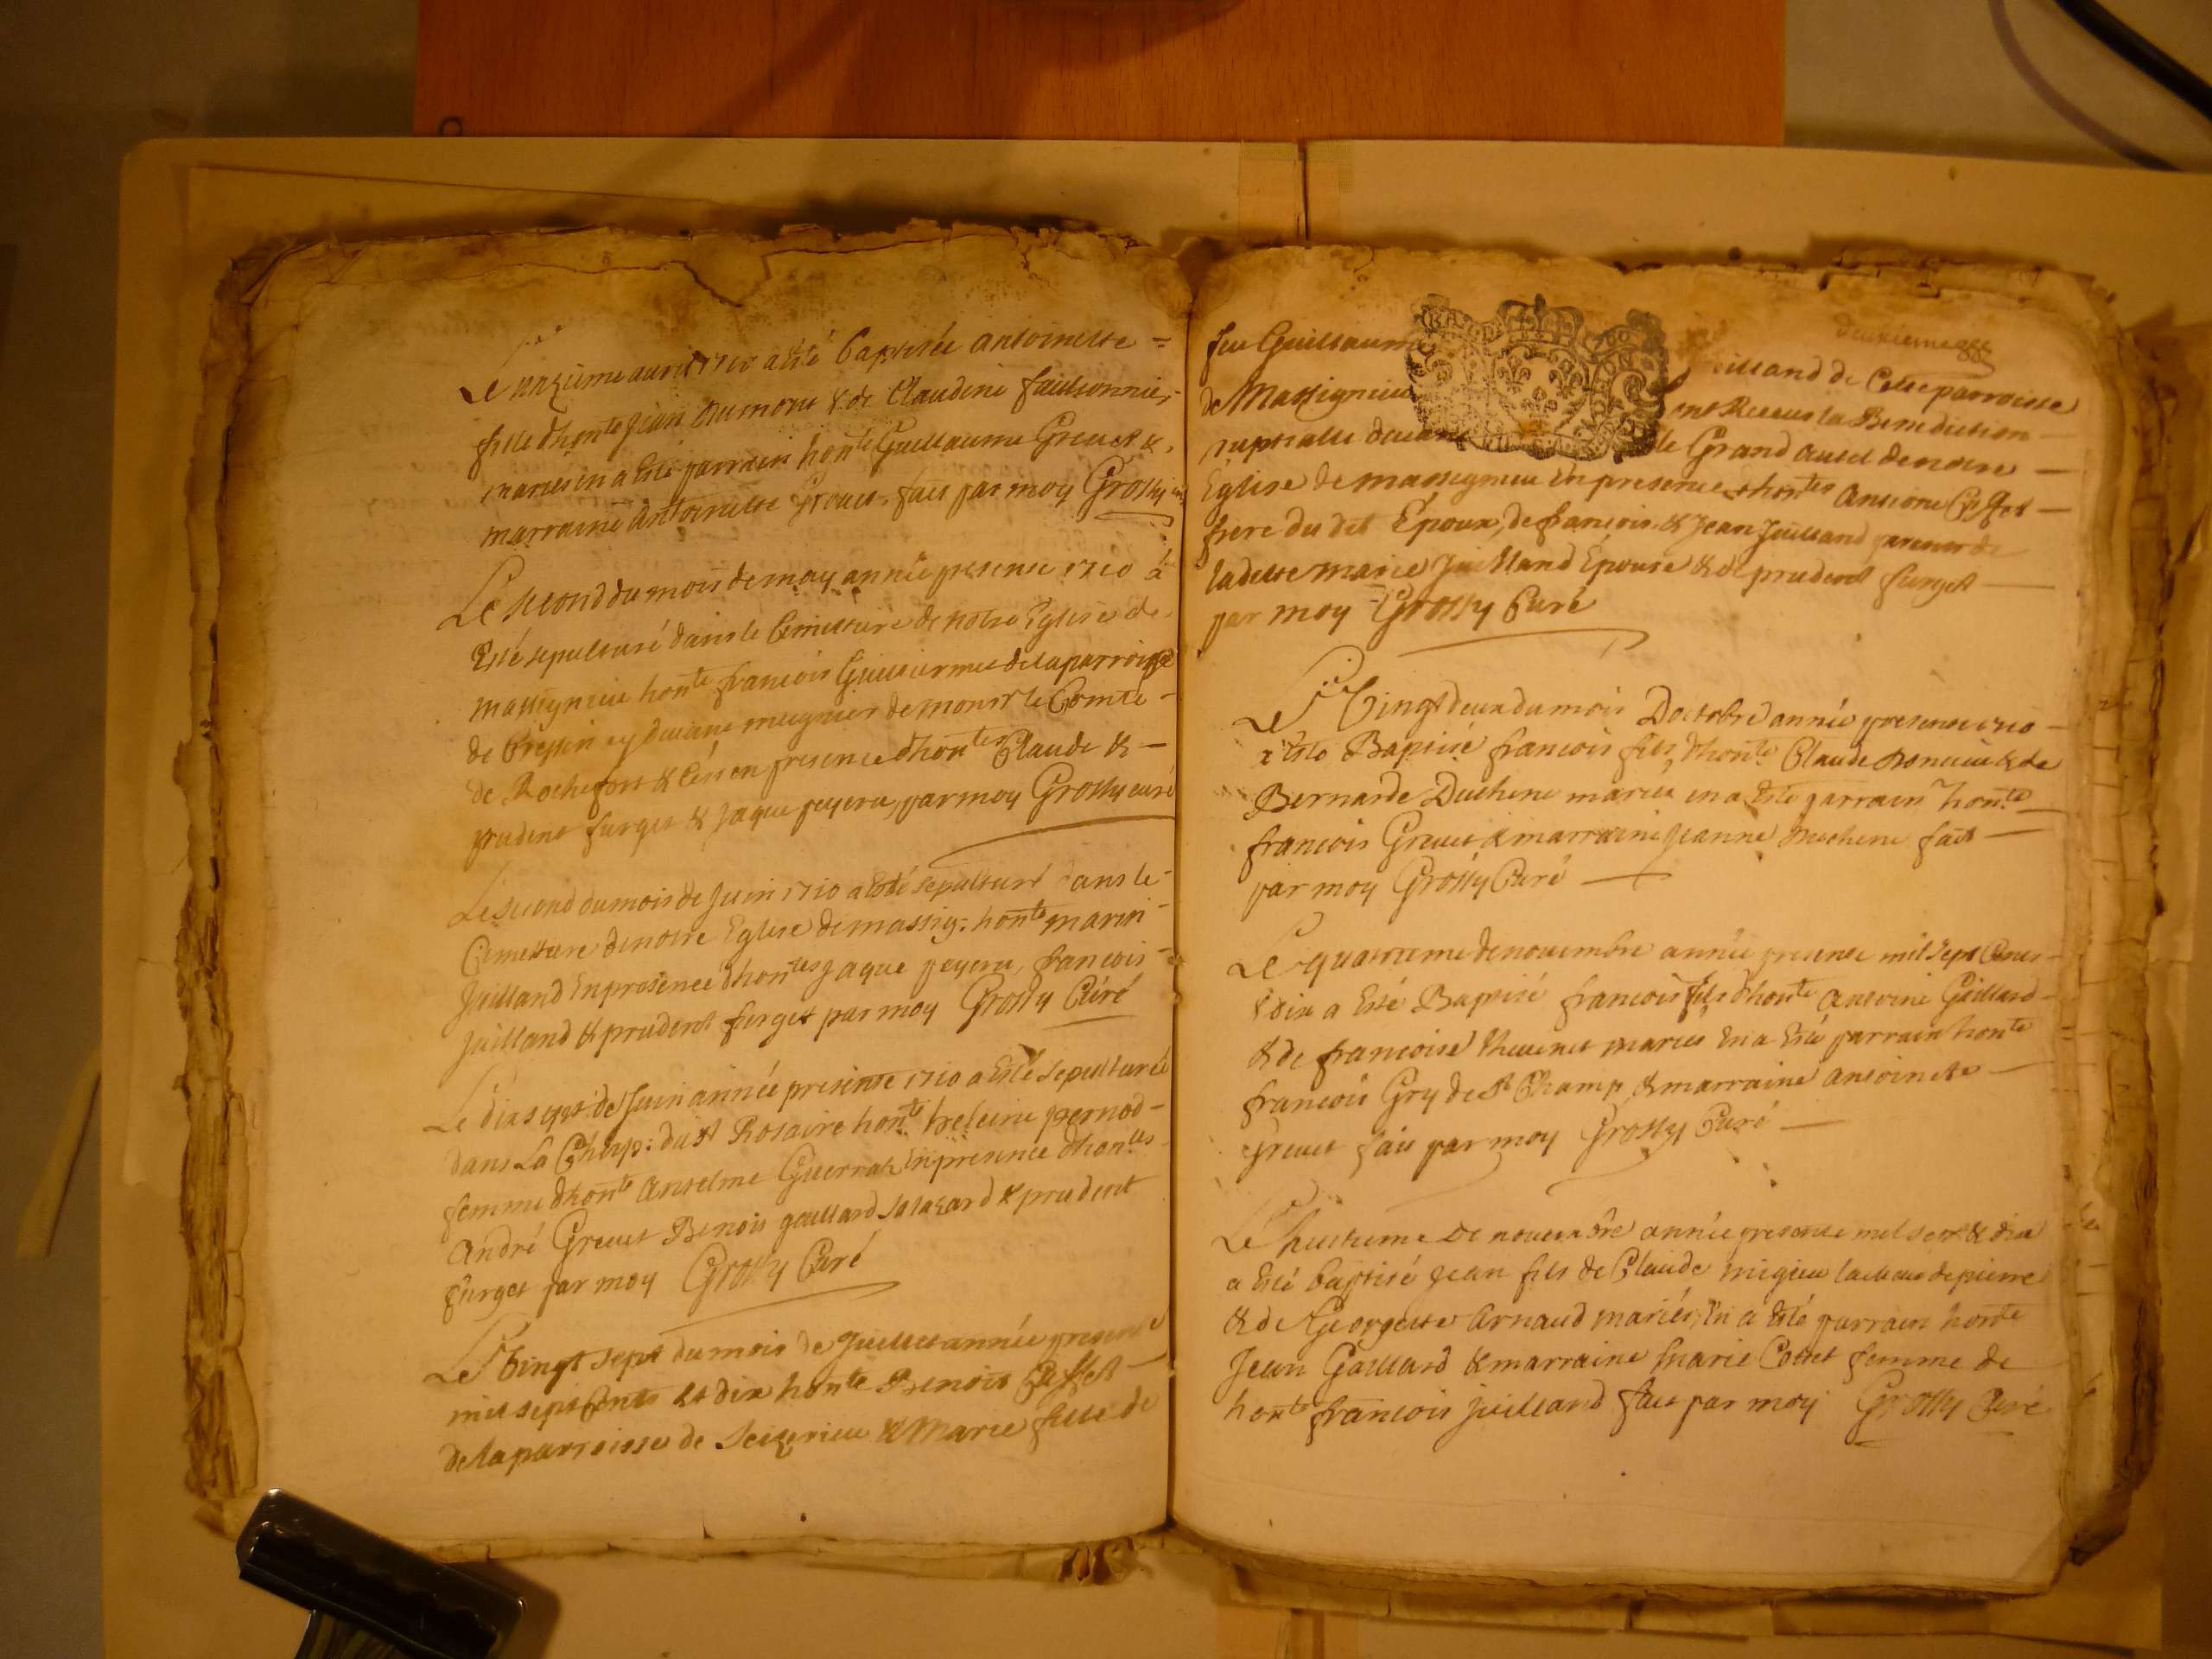 Le onzieme auril 1710 a Esté baptisée antoinette =
fille d'honte Jean Dumont & de Claudine
mariés en a Esté parrain honte Guilliaume Greuet &
marraine antoinette Greuet, fait par moy Grossy
Le second du mois de may année presente 1710 à
Esté sepulturé dans le Cimettiere de notre Eglise de
massignieu honte francois Guilliermet de la parroisse
de Cressin meugnier de monsr le Comte -
de Rochefort & Ceci en presence d'hontes Claude & -
prudent furget & Jaque peyeru, par moy Grossy curé
Le second du mois de Juin 1710 a Esté sepulturé dans le -
Cimettiere de notre Eglise de massig: honte marin -
Juilland En presence d'hontes Jaque peyeru, francois -
Juilland & prudent furget par moy Grossy Curé
Le dix sept de Juin année presente 1710 a Esté sepulturée
dans La Chap: du st Rosaire honte heleine pernod -
femme d'honte Anselme Guerraz En presence d'hontes
André Greuet Benois gaillard & prudent
furget par moy Grossy Curé
Le Vingt sept du mois de Juillet année presente
mil sept Cents Et dix honte Benoit Cuffet -
de la parroisse de Seizerieu & Marie fille de
deuxieme
feu Guilliaume Juilland de Cette parroisse
de Massignieu ont Receus la Benediction -
nuptialle deuant le Grand autel de notre -
Eglise de massignieu En presence d'hontes Antoine Cuffet -
frere du dit Epoux, de francois & Jean Juilland parents de
ladette marie Juilland Epouse & de prudent furget -
par moy Grossy Curé
Le Vingt deux du mois D'octobre année presente 1710 -
a Esté Baptisé francois fils d'honte Claude & de
Bernarde Duchene mariés en a Esté parrain honte
francois Greuet & marraine Jeanne Duchene fait -
par moy Grossy Curé
Le quatrieme de nouembre année presente mil sept Cents -
& dix a Esté Baptisé francois fils d'honte Antoine Gaillard -
& de francoise theuenet mariés En a Esté parrain honte
francois Gry de St Champ & marraine antoinette -
Greuet fait par moy Grossy Curé -
Le huitieme De nouembre année presente mil sept & dix
a Esté baptisé Jean fils de Claude migieu tailleur de pierre
& de Georgette Arnaud mariés, En a Esté parrain honte
Jean Gaillard & marraine marie Cottet femme de
honte francois Juilland fait par moy Grossy Curé